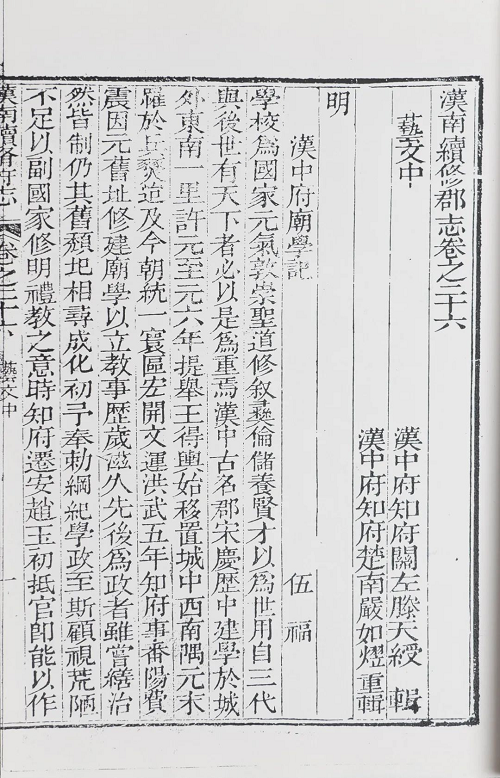 漢南續修郡志卷之二十六
漢中府知府關左滕天綬 輯
藝文中
漢中府知府楚南嚴如熤重輯
明
漢中府廟學記 伍福
學校爲國家元氣敦崇聖道修叙彞倫儲養賢才以爲世用自三代
與後世有天下者必以是爲重焉漢中古名郡宋慶歷中建學於城
外東南一里許元至元六年提舉王得輿始移置城中西南隅元末
罹於兵燹迨及今朝統一寰區左開文運洪武五年知府事番陽費
震因元舊址修建廟學以立教事歷歲滋久先後爲政者雖嘗繕治
然皆制仍其舊頹圯相尋成化初予奉勅綱紀學政至斯顧視荒陋
不足以副國家修明禮教之意時知府遷安趙玉初抵官即能以作
漢南續修府志 卷之二十六 藝文中 一